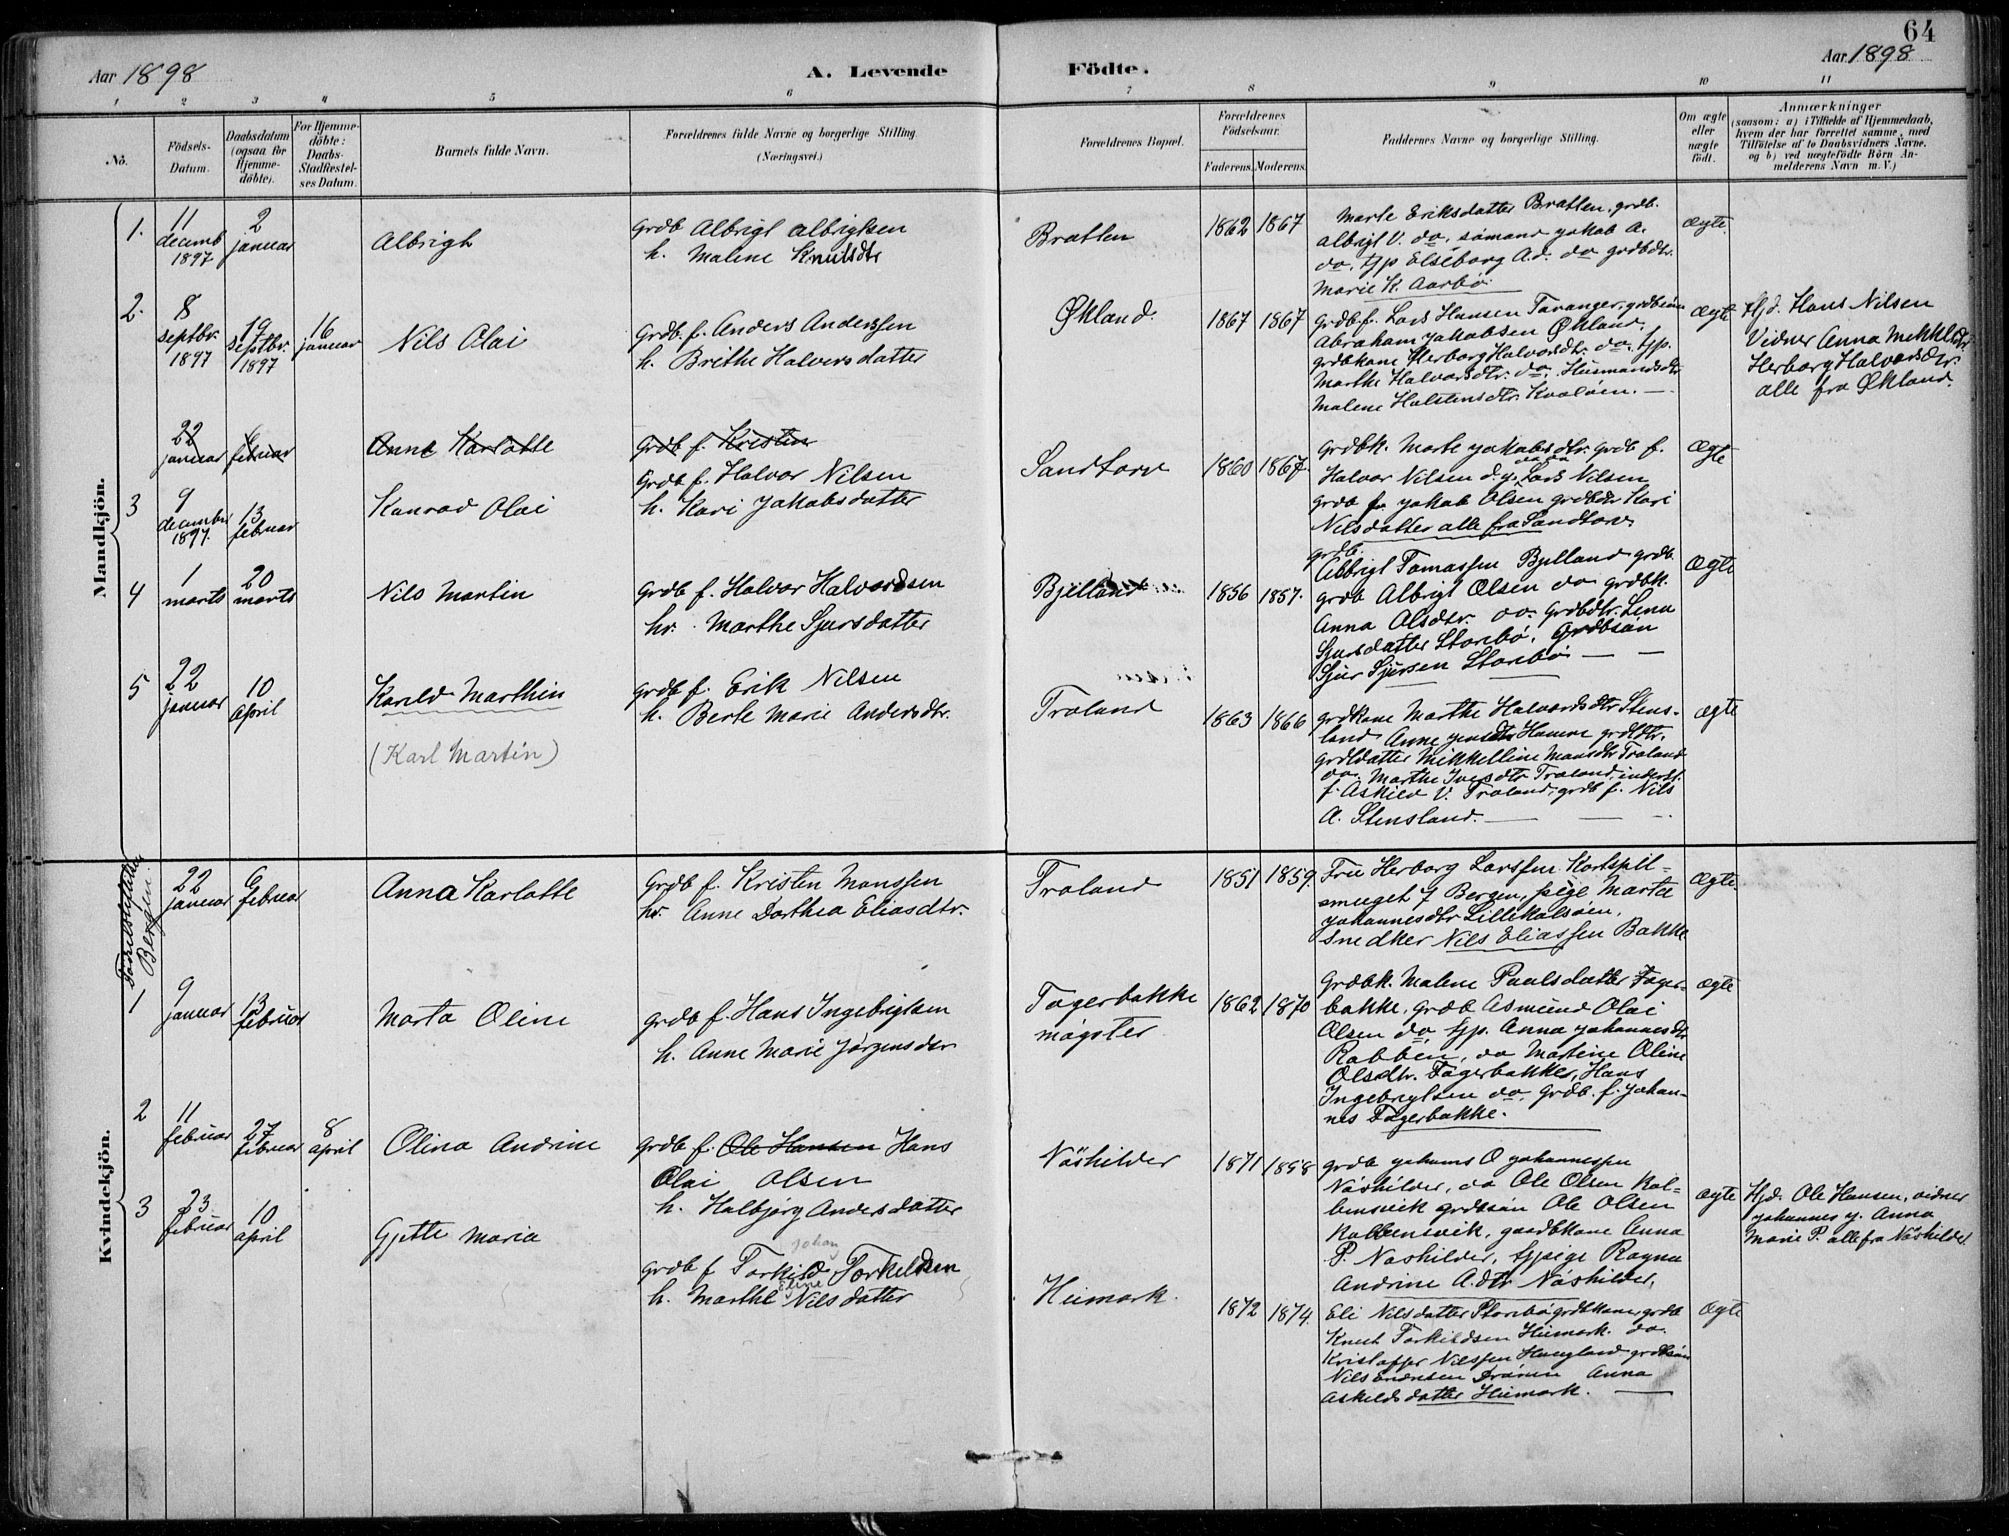 64
Aar 1898
A. Levende Födte.
Aar 1898
1 2 3 4 5 6 7 8 9 10 11
No.
Födsels-
Datum.
Daabsdatum
(ogsaa for
Hjemme-
döbte).
For Hjemme-
döbte:
Daabs-
Stadfæstel-
ses Datum.
Barnets fulde Navn.
Forældrenes fulde Navne og borgerlige Stilling.
(Næringsvei.)
Forældrenes Bopæl.
Forældrenes
Födselsaar.
Faderens. Moderens.
Faddernes Navne og borgerlige Stilling.
Om ægte
eller
uægte
födt.
Anmærkninger
(saasom: a) i Tilfælde af Hjemmedaab,
hvem der har forrettet samme, med
Tilföielse af to Daabsvidners Navne,
og b) ved uægtefödte Börn An-
melderens Navn m. V.)
Mandkjön.
1.
11
decemb
1897
2
januar
Albrigt
Grdb Albrigt Albrigtsen
h. Malene Knutsdtr
Bratten
1862 1867
Marte Eriksdatter Bratten, grdb.
Albrigt V. do, sömand Jakob A.
do, tjp Elseborg A.d. do grdbdtr.
Marie K. Aarbö
ægte
2.
8
septbr.
1897
19
septbr.
1897
16
januar
Nils Olai
Grdb. f. Anders Anderssen
h. Brithe Halversdatter
Økland.
1867 1867
grdb f. Lars Hansen Taranger, grdbsön
Abraham Jakobsen Økland,
grdbkone Herborg Halvorsdtr. do. tjp.
Marthe Halvorsdtr. do. Husmandsdtr
Malene Halstensdtr. Kvalöen. —
ægte
Hjd. Hans Nilsen
Vidner Anna Mikkelsdtr
Herborg Halvorsdtr.
alle fra Økland.
22
januar
6
februar
Anne Karlotte
Grdb f. Kristen
3
9
decembr
1897.
13
februar
Konrad Olai
Grdb f. Halvor Nilsen
h. Kari Jakobsdatter
Sandtorv
1860 1867.
Grdbk. Marte Jakobsdtr. grdb f.
Halvor Nilsen d.y. do do Lars Nilsen
grdb f. Jakob Olsen grdbdtr Kari
Nilsdatter alle fra Sandtorv
ægte
4
1
marts
20
marts
Nils Martin
Grdb f. Halvor Halvorsen
hr. Marthe Sjursdatter
Bjelland
1856 1857.
grdb.
Albrigt Tomassen Bjelland grdb.
grdb Albrigt Olsen do grdbk.
Anna Olsdtr. do. Grdbdtr. Lena
Sjursdatter Storebö, Grdbsön
Sjur Sjursen Storebö — —
ægte
5
22
januar
10
April
Karld Marthin
(Karl Martin)
grdb f. Erik Nilsen
h. Berte Marie Andersdtr.
Troland
1863 1866
grdkone Marthe Halvorsdtr Stens-
land Anne Jensdtr Havne grdbdtr,
grdbdatter Mikkelline Monsdtr Troland
do. Marthe Iversdtr Troland, inderst.
f. Askild V. Troland, grdb f. Nils
A. Stensland. — — —
ægte
Kvindekjön.
Födselsstiftelsen
Bergen.
22
januar
6
februar
Anna Karlotte
Grdb f. Kristen Monssen
hr. Anne Dorthea Eliasdtr.
Troland
1851 1859.
Fru Herborg Larssen Kortspil-
smuget 7 Bergen, pige Marta
Johannesdtr Lillekalsöen,
Snedker Nils Eliassen Bakke
ægte
1
9
januar
13
februar
Marta Oline
grdb f. Hans Ingebrigtsen
h. Anne Marie Jørgensdtr
Fagerbakke
møgster
1862 1870
Grdbk. Malene Paulsdatter Fager-
bakke, grdb Asmund Olai
Olsen do, tjp. Anna Johannesdtr
Rabben, do Martine Oline
Olsdtr. Fagerbakke, Hans
Ingebrigtsen do, Grdb. f. Johan-
nes Fagerbakke.
ægte
2
11
februar
27
februar
8
april
Olina Andrine
grdb f. Ole Hansen Hans
Olai Olsen
h. Halbjørg Andersdatter
Nöshilder
1871 1898
grdb Johans O Johannessen
Nöshilder, do Ole Olsen Kol-
bensvik grdsön Ole Olsen
Kolbensvik, gaardbkone Anna
P. Noshilder, tjpige Ragna
Andrine A.dtr Nöshilder.
ægte
Hjd. Ole Hansen, vidner
Johannes J. Anna
Marie P. alle fra Nöshilder
3
23
februar
10
april
Gjette Maria
Johan
grdb f Torkild Torkildsen
Eline
h. Marthe Nilsdatter
Heimark.
1872 1874
Eli Nilsdatter Storebö grdbkone, grdb
Knut Torkildsen Heimark do.
Kristoffer Nilssen Haugland grdbsön
Nils Andersen Drönen Anna
Askildsdatter Heimark. —
ægte